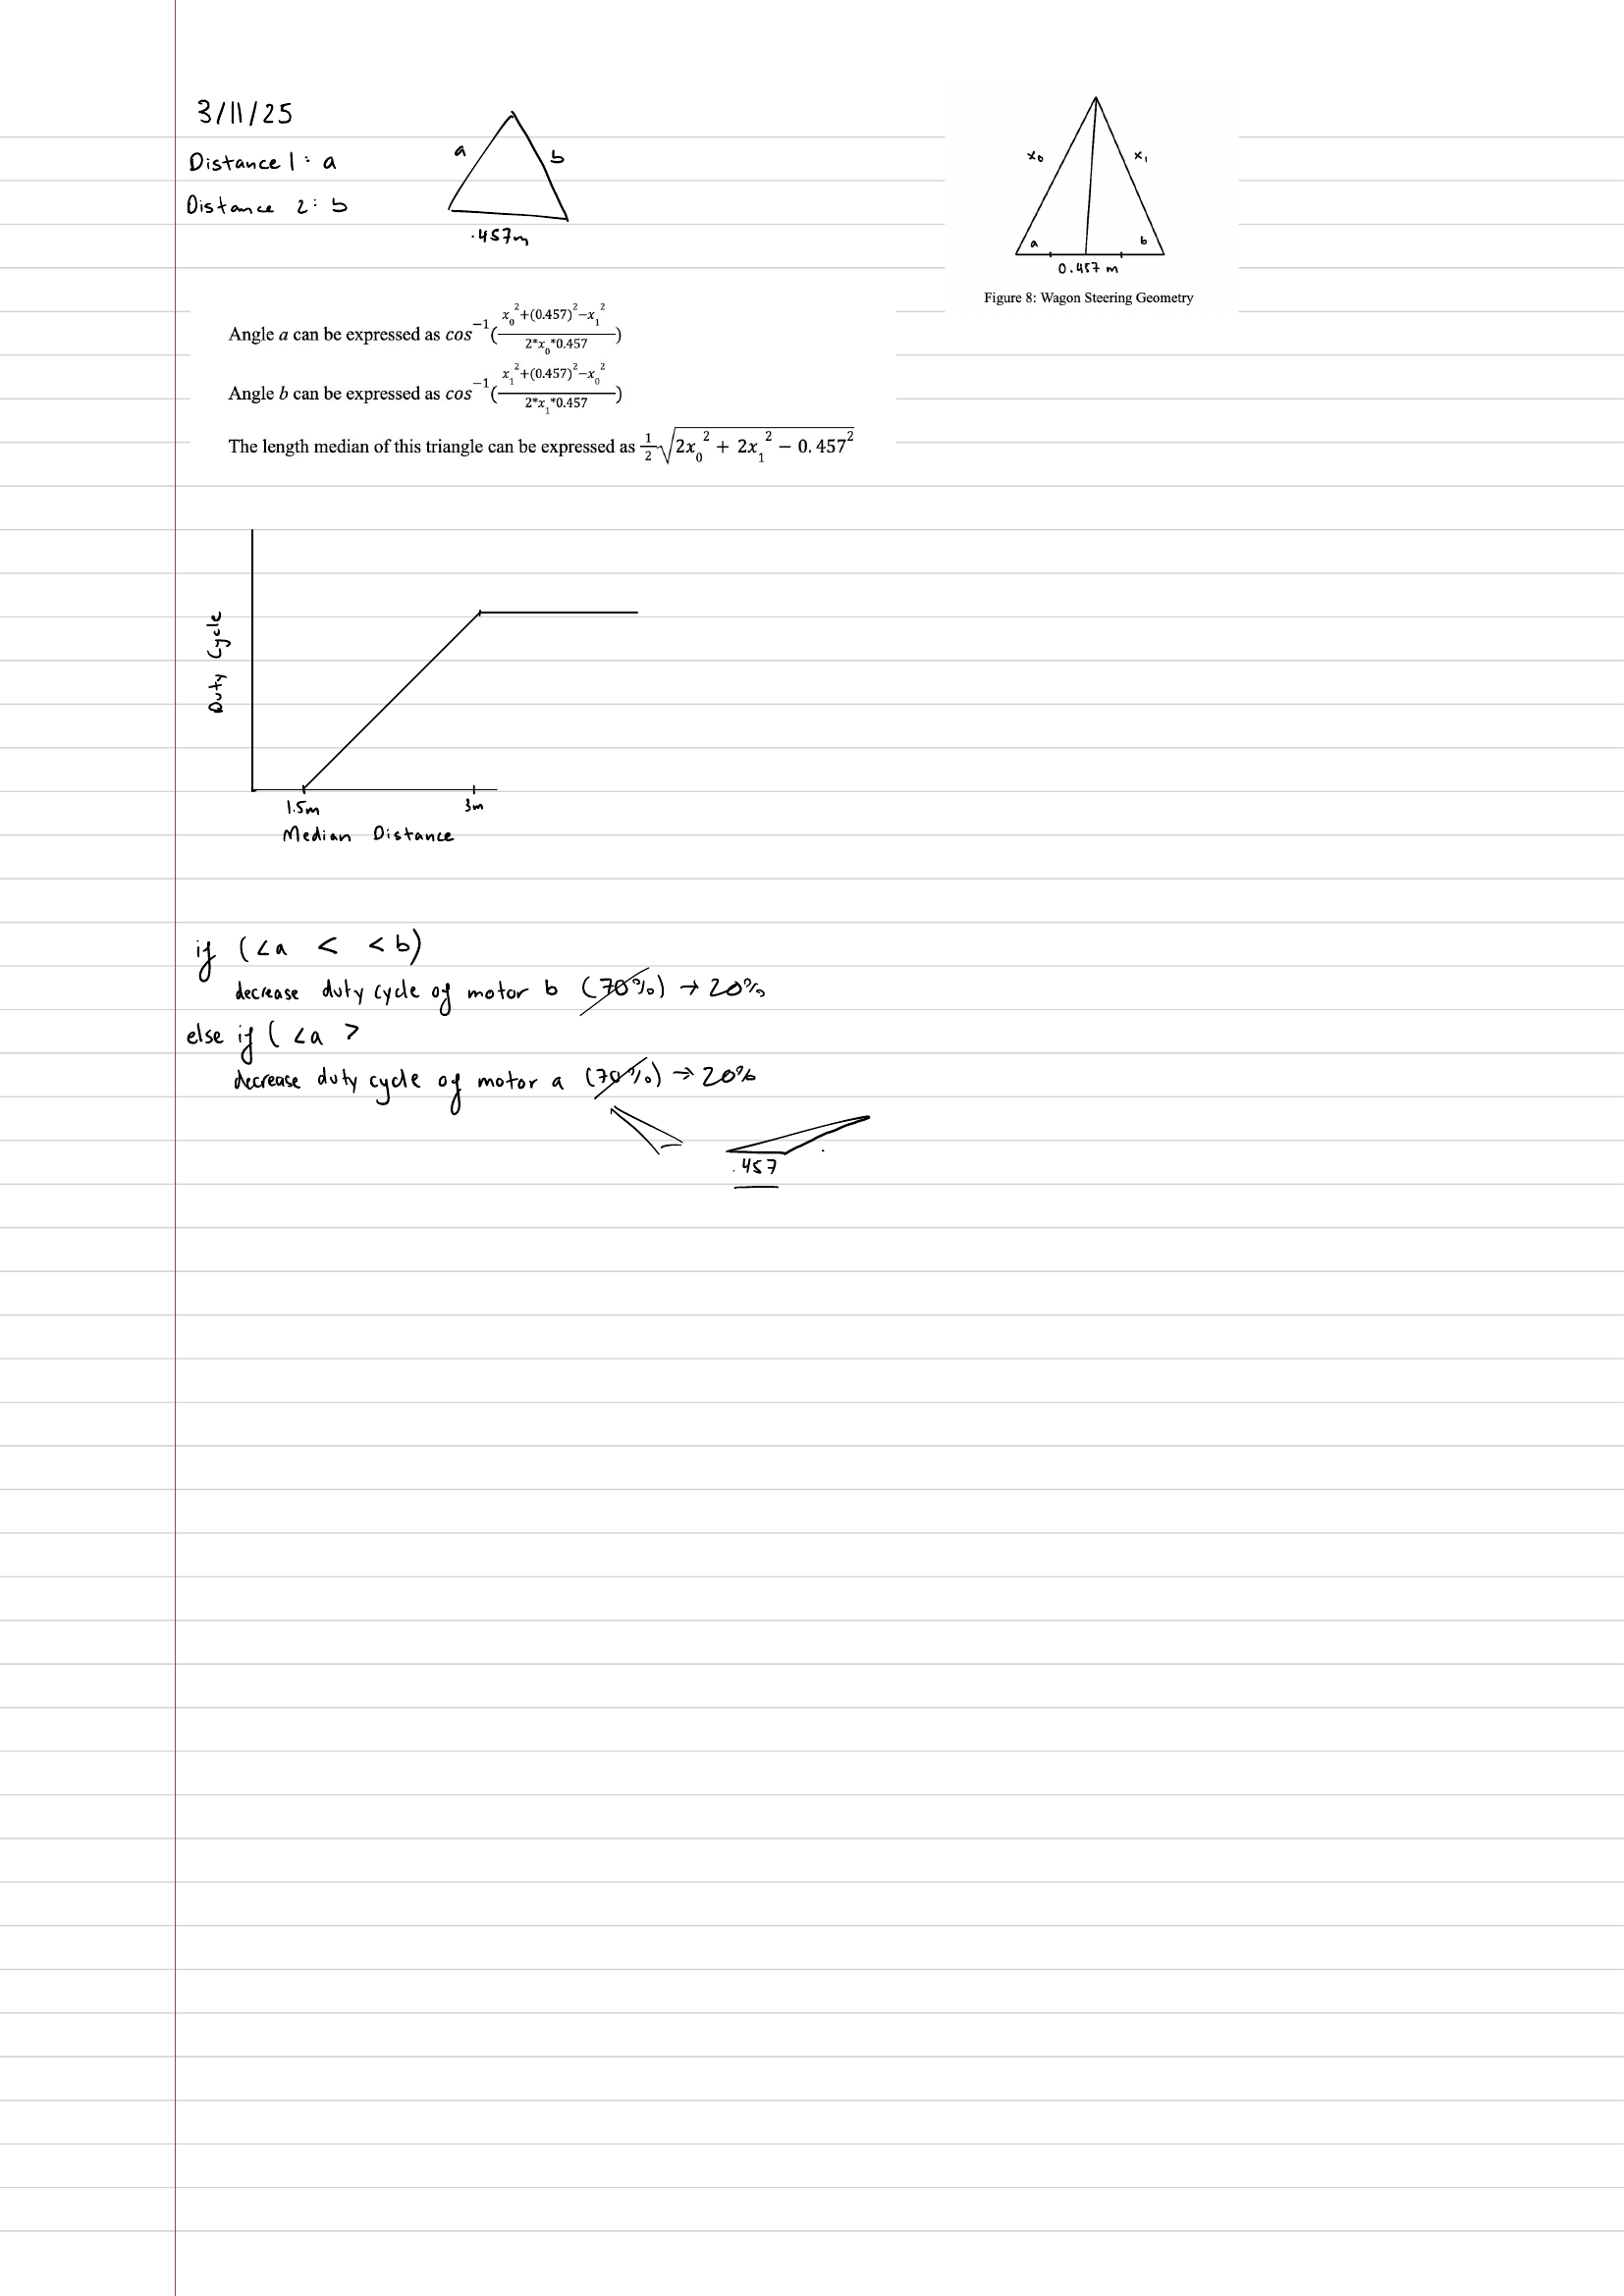 3/11/25
Distance 1: a
Distance 2: b
a
b
.457m
x₀
x₁
a
b
0.457 m
Figure 8: Wagon Steering Geometry
Angle a can be expressed as cos⁻¹((x₀²+(0.457)²−x₁²)/(2*x₀*0.457))
Angle b can be expressed as cos⁻¹((x₁²+(0.457)²−x₀²)/(2*x₁*0.457))
The length median of this triangle can be expressed as 1/2√(2x₀² + 2x₁² − 0.457²)
Duty Cycle
1.5m
3m
Median Distance
if (∠a < <b)
decrease duty cycle of motor b (70%) → 20%
else if ( ∠a >
decrease duty cycle of motor a (70%) → 20%
.457